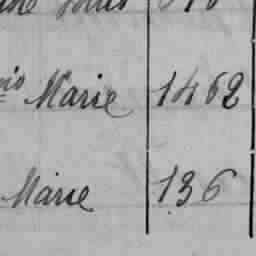 ois Marie 1462
Marie 136